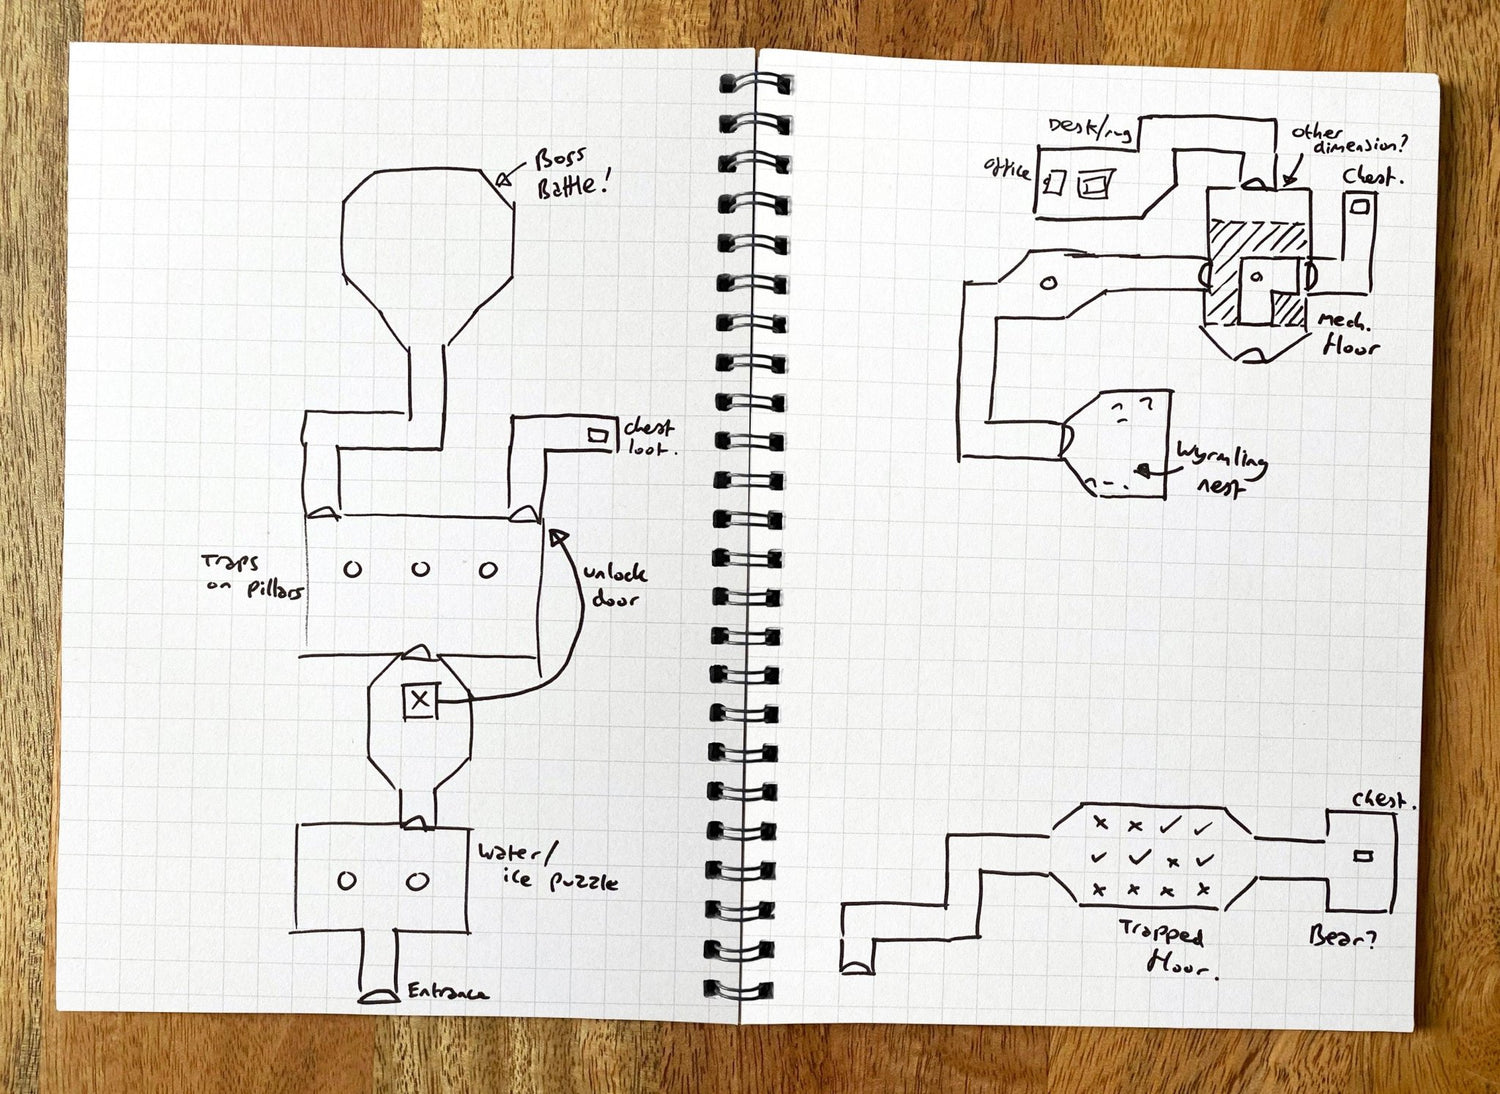 Boss
Battle!
chest
loot.
Traps
on pillars
unlock
door
X
water/
ice puzzle
Entrance
Desk/rug
office
other
dimension?
Chest.
Mech.
floor
Wyrmling
nest
Chest.
x x ✓ ✓
✓ ✓ x ✓
x x x x
Trapped
floor.
Bear?